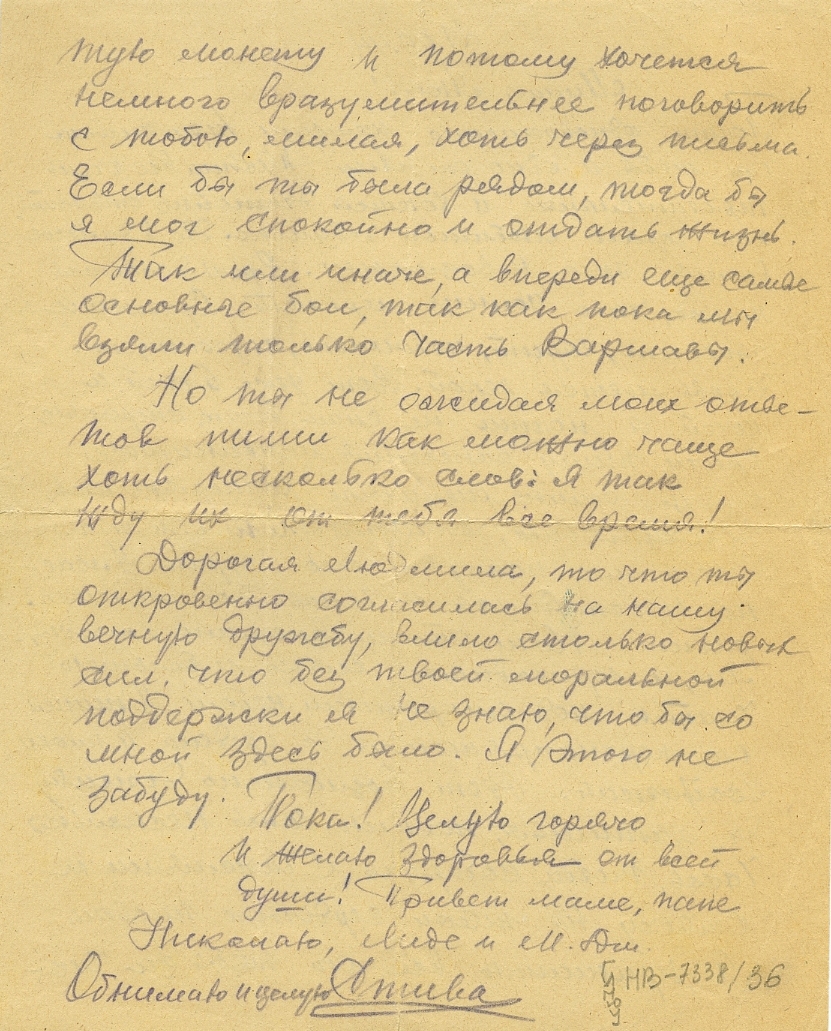 тую монету и потому хочется
немного вразумительнее поговорить
с тобою, милая, хоть через письма.
Если бы ты была рядом, тогда бы
я мог спокойно и отдать жизнь.
Так или иначе, а впереди еще самые
основные бои, так как пока мы
взяли только часть Варшавы.
Но ты не ожидая моих отве-
тов пиши как можно чаще
хоть несколько слов: Я так
жду их от тебя все время!
Дорогая Людмила, то что ты
откровенно согласилась на нашу
вечную дружбу, влило столько новых
сил, что без твоей моральной
поддержки я не знаю, что бы со
мной здесь было. Я этого не
забуду.
Пока! Целую горячо
и желаю здоровья от всей
души! Привет маме, папе
Николаю, Лиде и М. Дм.
Обнимаю и целую Стива
НВ-7338/36